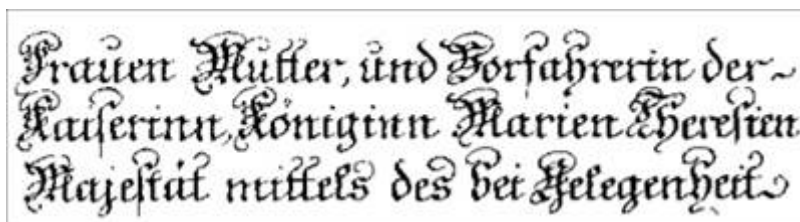 Frauen Mutter, und Vorfahrerin der
Kaiserinn, Königinn Marien Theresien
Majestät mittels des bei Gelegenheit